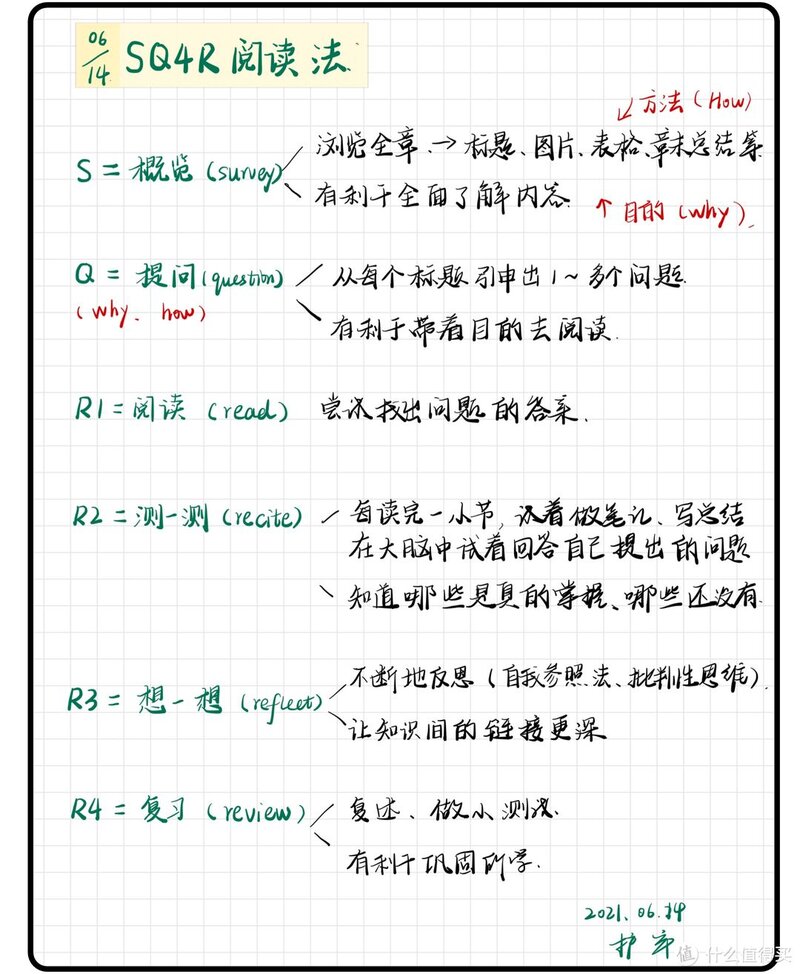 06/14 SQ4R 阅读法
方法 (How)
S = 概览 (survey)
浏览全章 → 标题、图片、表格、章末总结等
有利于全面了解内容
目的 (why)
Q = 提问 (question)
(why、how)
从每个标题引申出1~多个问题
有利于带着目的去阅读.
R1 = 阅读 (read) 尝试找出问题的答案.
R2 = 测一测 (recite)
每读完一小节,试着做笔记、写总结
在大脑中试着回答自己提出的问题
知道哪些是真的掌握、哪些还没有.
R3 = 想一想 (reflect)
不断地反思 (自我参照法、批判性思维).
让知识间的链接更深
R4 = 复习 (review)
复述、做小测试.
有利于巩固所学.
2021.06.14
值 什么值得买